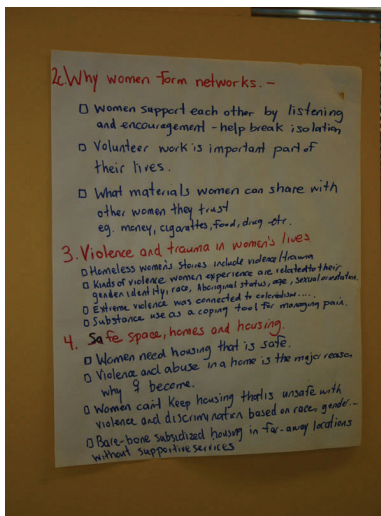 2c. Why women form networks. -
□ Women support each other by listening
and encouragement - help break isolation
□ Volunteer work is important part of
their lives.
□ What materials women can share with
other women they trust
eg. money, cigarettes, food, drug etc.
3. Violence and trauma in women's lives
□ Homeless women's stories include violence/trauma
□ Kinds of violence women experience are related to their
gender identity, race, Aboriginal status, age, sexual orientation.
□ Extreme violence was connected to colonialism....
□ Substance use as a coping tool for managing pain.
4. Safe space, homes and housing.
□ Women need housing that is safe.
□ Violence and abuse in a home is the major reason
why ♀ become.
□ Women can't keep housing that is unsafe with
violence and discrimination based on race, gender -
□ Bare-bone subsidized housing in far-away locations
without supportive services